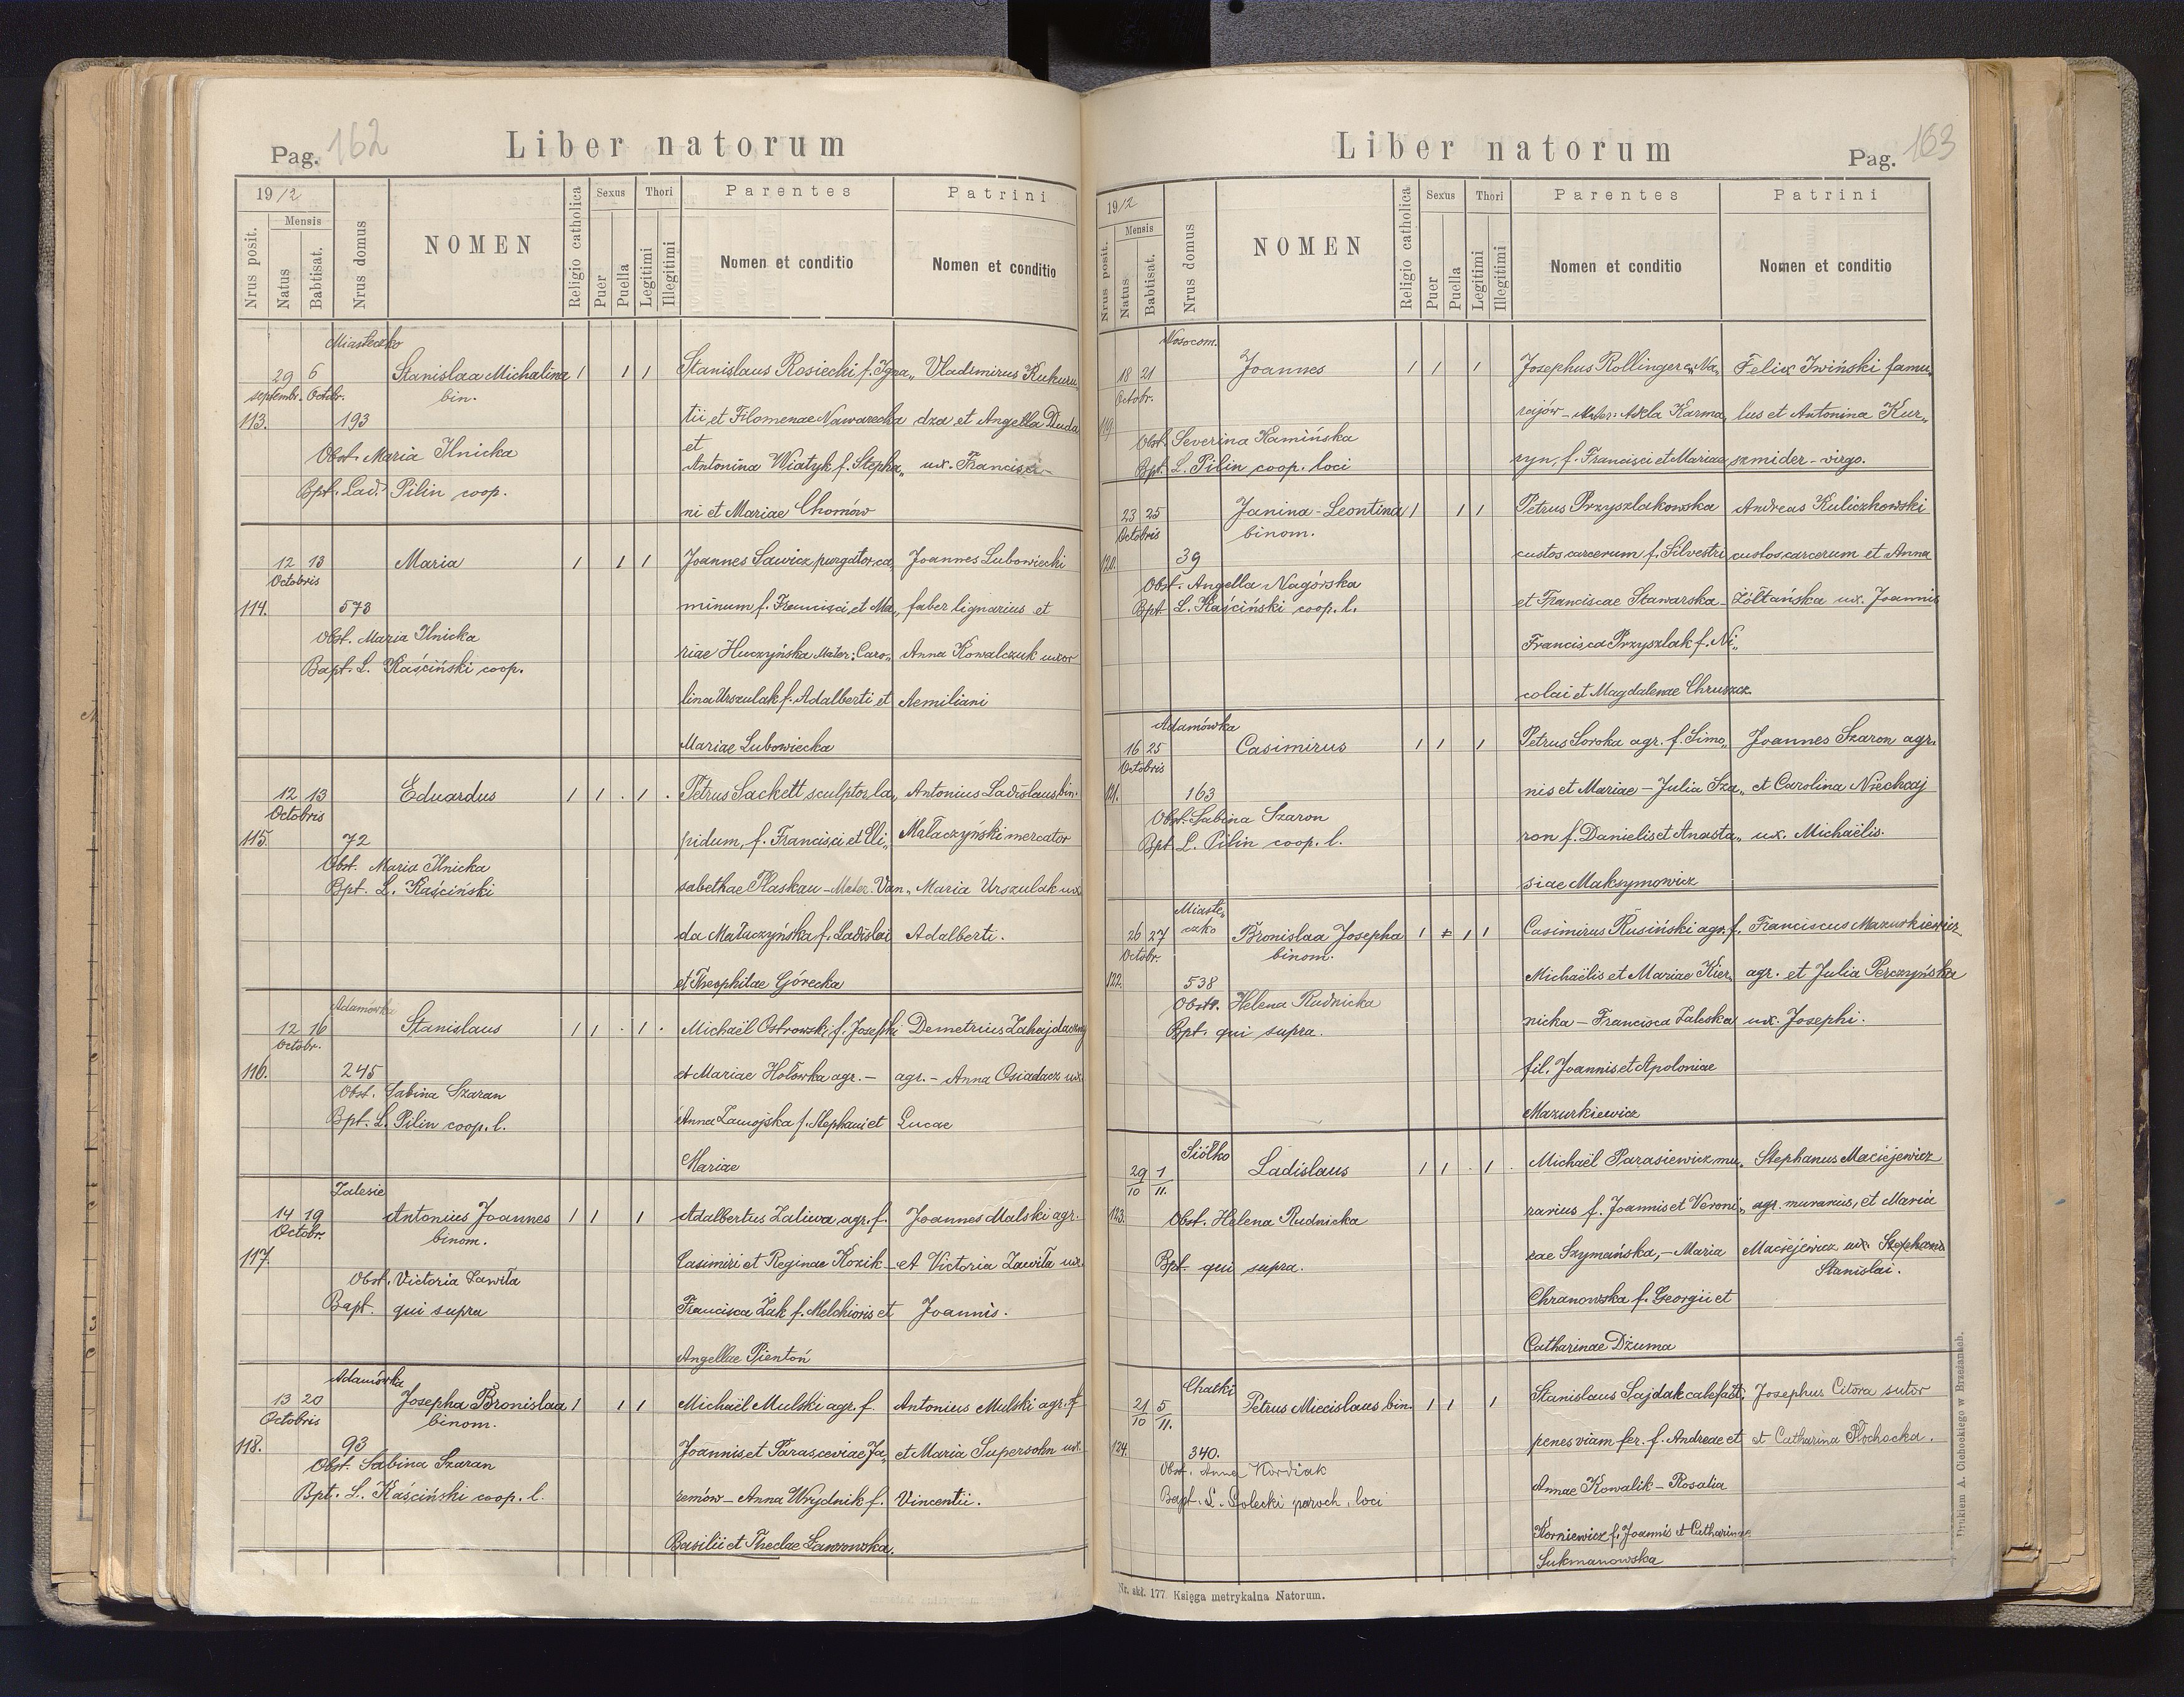 Pag. 162
Liber natorum
1912
Mensis
Nrus posit.
Natus
Babtisat.
Nrus domus
NOMEN
Religio catholica
Sexus
Puer
Puella
Thori
Legitimi
Illegitimi
Parentes
Nomen et conditio
Patrini
Nomen et conditio
Miasteczko
29 6 Stanislaa Michalina 1 1 1 Stanislaus Rosiecki f. Igna„ Vladimirus Kukuru„
septembr. Octobr. bin.
113. 193 tii et Filomenae Nawarecka dza et Angella Duda
et
Obst. Maria Ilnicka Antonina Wiatyk f. Stepha„ ux. Francisci
Bpt. Lad. Pilin coop.
ni et Mariae Chomów
12 13 Maria 1 1 1 Joannes Sawicz purgator, ca„ Joannes Lubowiecki
Octobris
114. 573 minum f. Francisci et Ma„ faber lignarius et
Obst. Maria Ilnicka
riae Huczyńska Mater: Caro„ Anna Kowalczuk uxor
Bapt. L. Kaściński coop.
lina Urszulak f. Adalberti et Aemiliani
Mariae Lubowiecka
12 13 Eduardus 1 1 . 1 . Petrus Sackett sculptor la„ Antonius Ladislaus bin.
Octobris
115. 72 pidum, f. Francisci et Eli„ Małaczyński mercator
Obst. Maria Ilnicka
Bpt. L. Kaściński sabethae Plaskau - Mater. Van„ Maria Urszulak ux
da Małaczyńska f. Ladislai Adalberti.
et Theophilae Górecka
Adamówka
12 16 Stanislaus 1 1 . 1 . Michaël Ostrowski, f. Josephi Demetrius Zahajdaczny
Octobr.
116. 245 et Mariae Hołówka agr. - agr. - Anna Osiadacz ux.
Obst. Sabina Szaran
Bpt. L. Pilin coop. l. Anna Zamojska f. Stephani et Lucae
Mariae
Zalesie
14 19 Antonius Joannes 1 1 1 Adalbertus Zaliwa, agr. f. Joannes Malski agr.
Octobr. binom.
117. Casimiri et Reginae Kozik - et Victoria Zawiła ux.
Obst. Victoria Zawiła
Bapt. qui supra Francisca Żak f. Melchioris et Joannis.
Angellae Pientoń
Adamówka
13 20 Josepha Bronislaa 1 1 1 Michaël Mulski agr. f. Antonius Mulski agr. f
Octobris binom.
118. 93 Joannis et Parasceviae Ja„ et Maria Supersohn ux.
Obst. Sabina Szaran
Bpt. L. Kaściński coop. l. remów - Anna Wrydnik f. Vincentii.
Basilii et Theclae Ławrowska.
Liber natorum
Pag. 163
1912
Mensis
Nrus posit.
Natus
Babtisat.
Nrus domus
NOMEN
Religio catholica
Sexus
Puer
Puella
Thori
Legitimi
Illegitimi
Parentes
Nomen et conditio
Patrini
Nomen et conditio
Nosocom.
18 21 Joannes 1 1 1 Josephus Rollinger e„ Na„ Felix Iwiński famu„
Octobr.
119. rajów - Mater: Adela Karma„ lus et Antonina Kur„
Obst. Severina Kamińska
Bpt. L. Pilin coop. loci ryn, f. Francisci et Mariae szmider - virgo.
23 25 Janina - Leontina 1 1 1 Petrus Przyszlakowska Andreas Kuliczkowski
Octobris binom.
120. 39 custos carcerum f. Silvestri custos carcerum et Anna
Obst. Angella Nagórska
Bpt L. Kaściński coop. l. et Franciscae Stawarska - Żółtańska ux. Joannis
Francisca Przyszlak f. Ni„
colai et Magdalenae Chruszcz.
Adamówka
16 25 Casimirus 1 1 1 Petrus Soroka agr. f. Simo„ Joannes Szaron agr.
Octobris
121. 163 nis et Mariae - Julia Sza„ et Carolina Niechcaj
Obst. Sabina Szaron
Bpt L. Pilin coop. l. ron f. Danielis et Anasta„ ux. Michaëlis.
siae Maksymowicz
Miaste„
czko
26 27 Bronislaa Josepha 1 1 1 Casimirus Rusiński agr. f. Franciscus Mazurkiewicz
Octobr. binom.
122. 538 Michaëlis et Mariae Kier„ agr. et Julia Perczyńska
Obstr. Helena Rudnicka
Bpt. qui supra. nicka - Francisca Zaleska ux. Josephi.
fil. Joannis et Apoloniae
Mazurkiewicz
Siółko
29/10 1/11. Ladislaus 1 1 . 1 . Michaël Parasiewicz mu„ Stephanus Maciejewicz
123. Obst. Helena Rudnicka rarius f. Joannis et Veroni„ agr. murarius, et Maria
Bpt. qui supra. cae Szymańska, - Maria Maciejewicz ux. Stephani
Stanislai.
Chranowska f. Georgii et
Catharinae Dżuma
Chatki
21/10 5/11. Petrus Miecislaus bin. 1 1 1 Stanislaus Sajdak calefact. Josephus Citora sutor
124. 340. penes viam fer. f. Andreae et et Catharina Płochocka.
Obst. Anna Kordiak
Bapt. L. Solecki paroch. loci Annae Kowalik - Rosalia
Korniewicz f. Joannis et Catharinae
Sukmanowska
Nr. skł. 177 Księga metrykalna Natorum.
Drukiem A. Cichockiego w Brzeżanach.